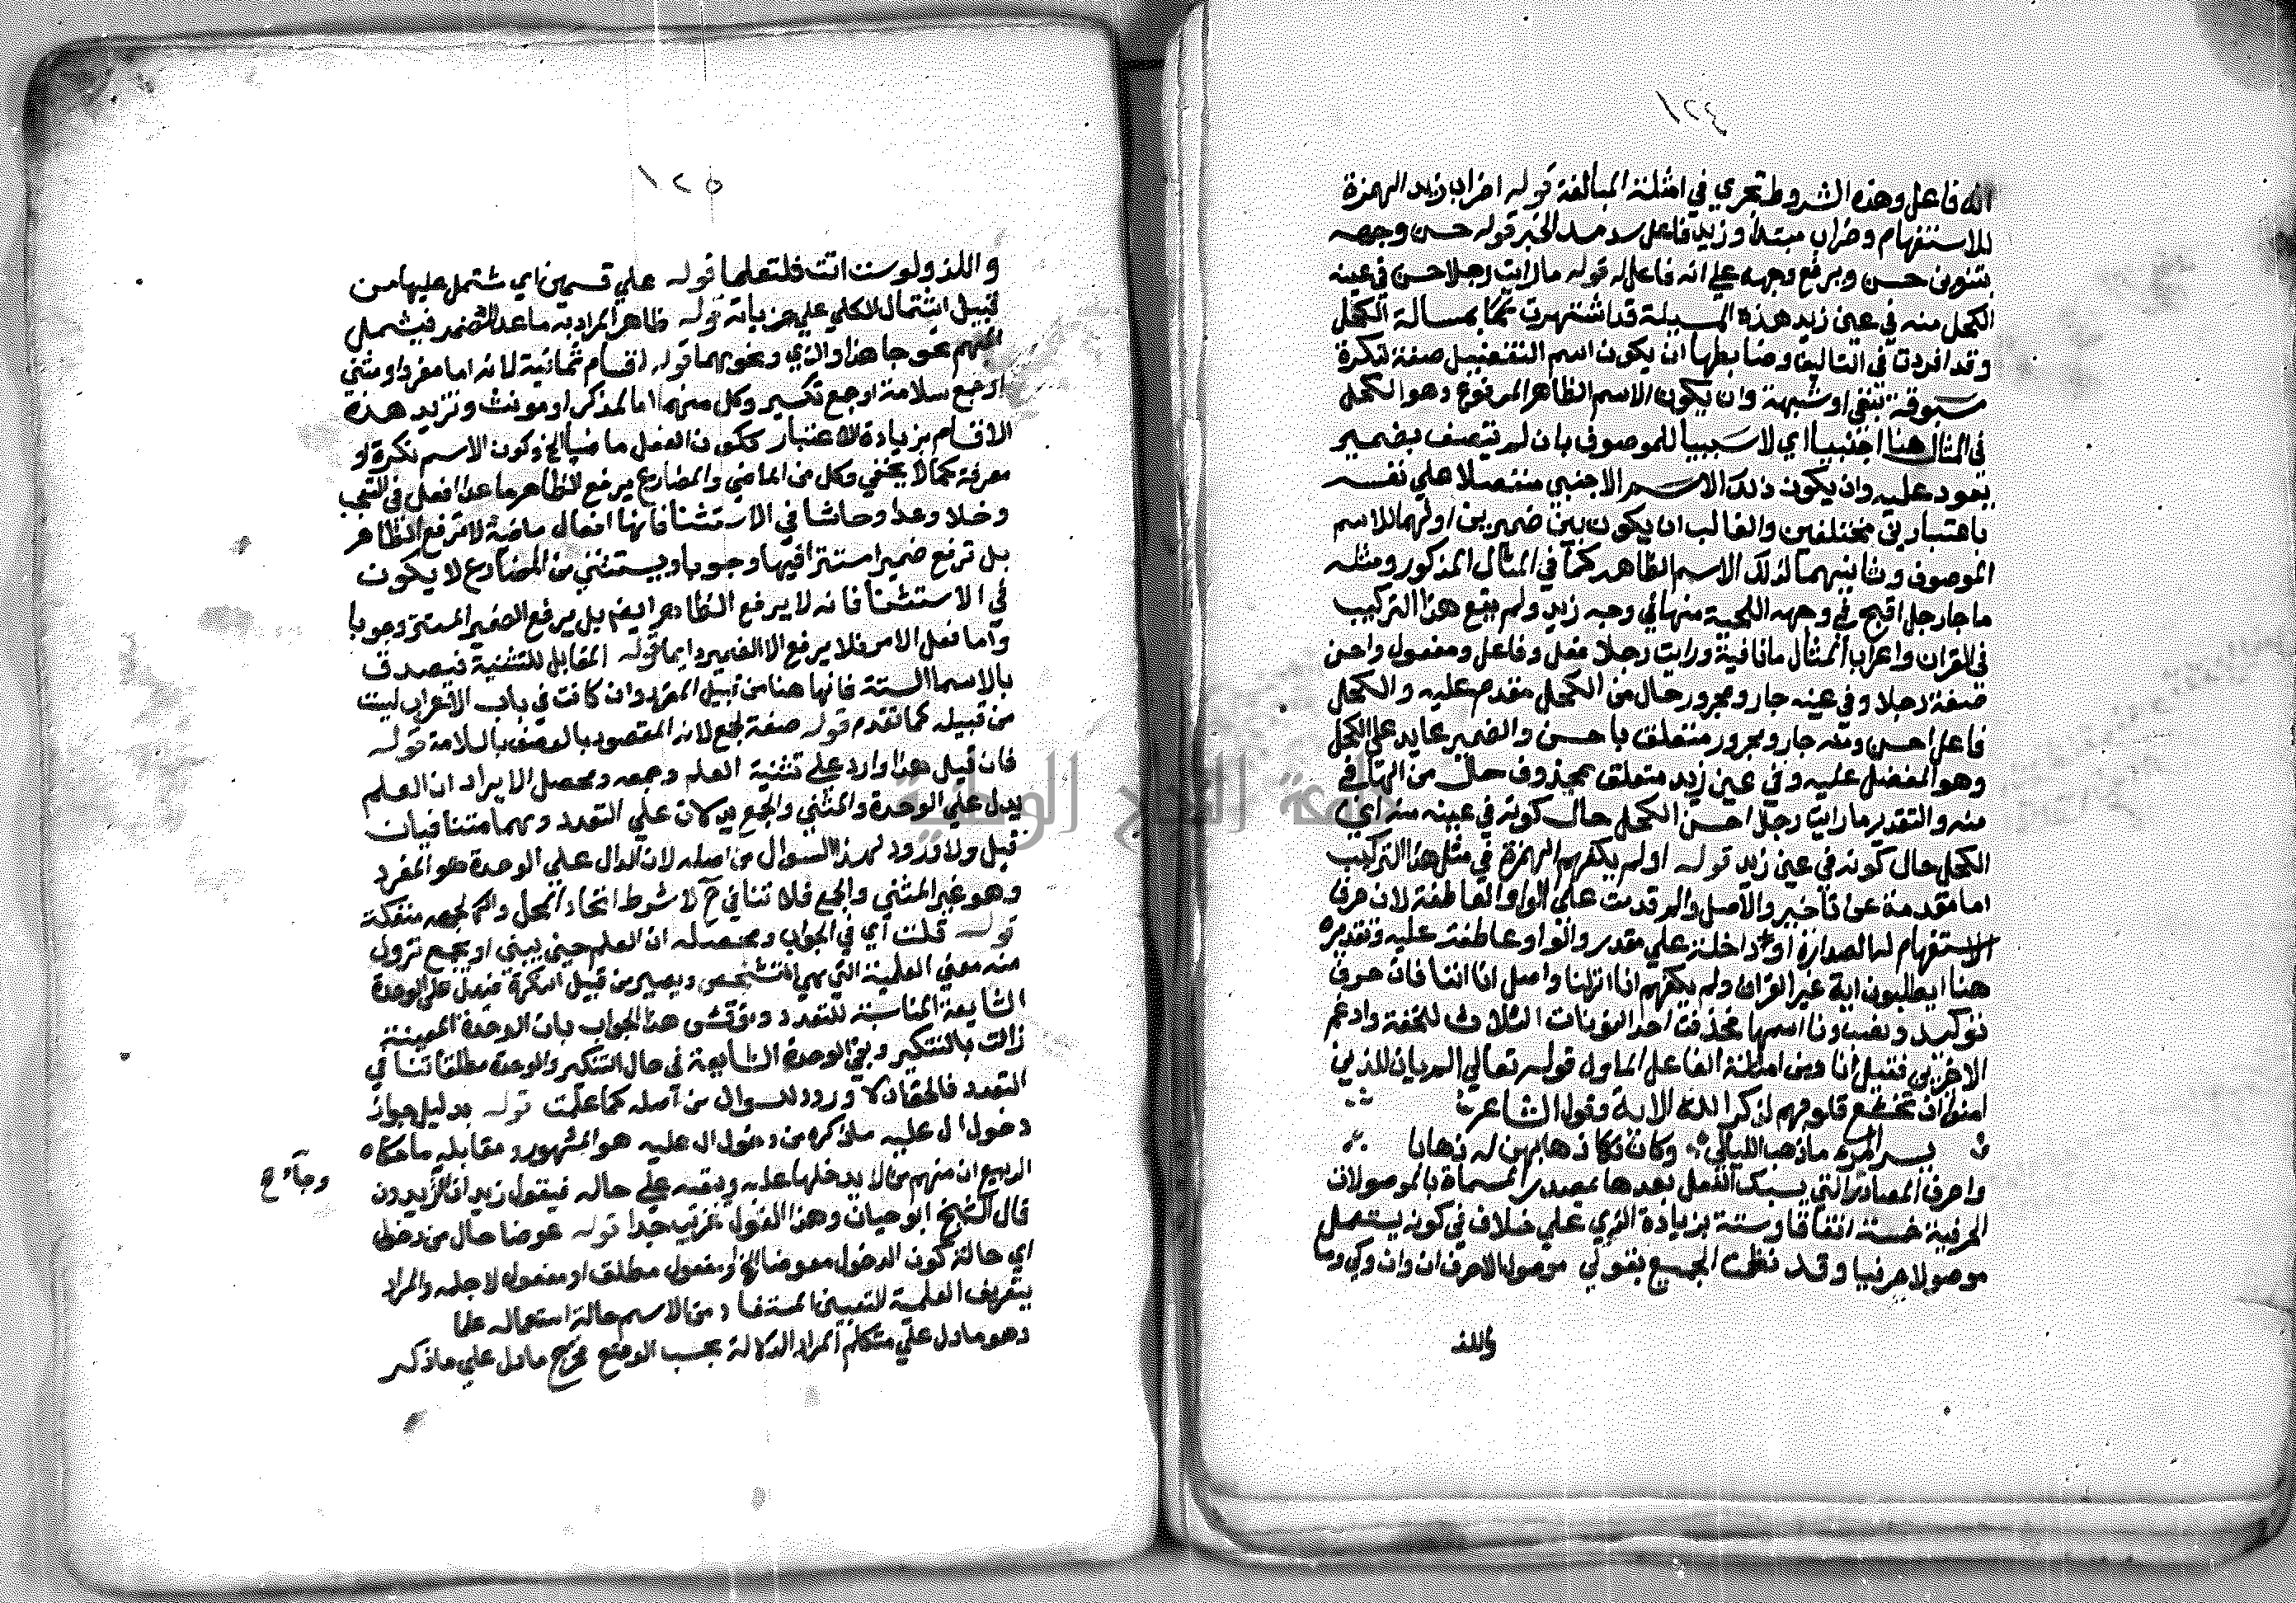 ١٢٤
الله فاعل وهذه الشروط تجري في امثلة المبالغة قوله اضراب زيد الهمزة
للاستفهام وضراب مبتدا وزيد فاعل سد مسد الخبر قوله حسن وجهه
بتنوين حسن وبرفع وجهه علي انه فاعل له قوله ما رايت رجلا حسن في عينه
الكحل منه في عين زيد هذه المسيلة قد اشتهرت بمسالة الكحل
وقد افردت في التاليف وضابطها ان يكون اسم التفضيل صفة لنكرة
مسبوقة بنفي او شبهة وان يكون الاسم الظاهر المرفوع وهو الكحل
في المثال هنا اجنبيا اي لا سببيا للموصوف بان لم يتصف بضمير
يعود عليه وان يكون ذلك الاسم الاجنبي مفضلا علي نفسه
باعتبارين مختلفين والغالب ان يكون بين ضميرين اولهما للاسم
الموصوف وثانيهما لذلك الاسم الظاهر كما في المثال المذكور ومثله
ما جا رجل اقبح في وجهه اللحية منها في وجه زيد ولم يقع هذا التركيب
في القران واعراب المثال ما نافية ورايت رجلا فعل وفاعل ومفعول واحسن
صفة رجلا وفي عينه جار ومجرور حال من الكحل مقدم عليه والكحل
فاعل احسن ومنه جار ومجرور متعلق باحسن والضمير عايد علي الكحل
وهو المفضل عليه وفي عين زيد متعلق بمحذوف حال من الها في
منه والتقدير ما رايت رجلا احسن الكحل حال كونه في عينه منه اي
الكحل حال كونه في عين زيد قوله اولم يكفهم الهمزة في مثل هذا التركيب
اما مقدمة عن تاخير والاصل والم قدمت علي الواو العاطفة لان حرف
الاستفهام له الصدارة او داخلة علي مقدر والواو عاطفة عليه وتقديره
هنا ايطلبون اية غير القران ولم يكفهم انا انزلنا واصل انا اننا فان حرف
توكيد ونصب ونا اسمها فحذفت احد النونات الثلاث للخفة وادغم
الاخرتين فقيل انا ومن امثلة الفاعل الماول قوله تعالي الم يان للذين
امنوا ان تخشع قلوبهم لذكر الله الاية وقول الشاعر
يسر المرء ما ذهب الليالي وكان ذهابهن له ذهابا
واحرف المصادر التي يسبك الفعل بعدها بمصدر المسماة بالموصولات
الحرفية خمسة اتفاقا وستة بزيادة الذي علي خلاف في كونه يستعمل
موصولا حرفيا وقد نظمت الجميع بقولي موصول الاحرف ان وان وكي وما
والله
١٢٥
والذ ولو ست اتت فلتعلما قوله علي قسمين اي شتمل عليها من
قبيل اشتمال الكلي علي جزياته قوله ظاهر المراد به ما عدا الضمير فيشمل
المبهم نحو جا هذا والذي ونحوهما قوله اقسام ثمانية لانه اما مفرد او مثني
او جمع سلامة او جمع تكسير وكل منهما اما المذكر او مونث وتزيد هذه
الاقسام بزيادة الاعتبار ككون الفعل ماضيا الخ وكون الاسم نكرة او
معرفة كما لا يخفي وكل من الماضي والمضارع يرفع الظاهر ما عدا افعل في التعجب
وخلا وعدا وحاشا في الاستثنا فانها افعال ماضية لا ترفع الظاهر
بل ترفع ضميرا مستترا فيها وجوبا ويستثني من المضارع لا يكون
في الاستثنا فانه لا يرفع الظاهر ايضا بل يرفع الضمير المستتر وجوبا
واما فعل الامر فلا يرفع الا الضمير دايما قوله المقابل للتثنية فيصدق
بالاسما الستة فانها هنا من قبيل المفرد وان كانت في باب الاعراب ليست
من قبيله كما تقدم قوله صفة لجمع لانه المقصود بالوصف بالسلامة قوله
فان قيل هذا وارد علي تثنية العلم وجمعه ومحصل الايراد ان العلم
يدل علي الوحدة والمثني والجمع يدلان علي التعدد وهما متنافيان
قيل ولا ورود لهذا السوال من اصله لان الدال علي الوحدة هو المفرد
وهو غير المثني والجمع فلا تنافي ح لا شرط اتحاد المحل والجهة منفكة
قوله قلت اي في الجواب ومحصله ان العلم حين يثني او يجمع تزول
منه معني العلمية التي هي التشخص ويصير من قبيل النكرة فيدل علي الوحدة
الشايعة المناسبة للتعدد ونوقش هذا الجواب بان الوحدة المعينة
زالت بالتنكير وبقي الوحدة الشايعة في حال التنكير والوحدة مطلقا تنافي
التعدد فالحق ان لا ورود للسوال من اصله كما علمت قوله بدليل جواز
دخول ال عليه ما ذكره من دخول ال عليه هو المشهور ومقابله ما حكاه
الربيع ان منهم من لا يدخلها عليه ويبقيه علي حاله فيقول زيدان الزيدون
وجآء ع
قال الشيخ ابو حيان وهذا القول غريب جدا قوله عوضا حال من دخول
اي حالة كون الدخول معوضا الخ او مفعول مطلق او مفعول لاجله والمراد
بتعريف العلمية التعيين المستفاد من الاسم حالة استعماله علما
وهو ما دل علي متكلم المراد الدلالة بحسب الوضع فخرج ما دل علي ما ذكر